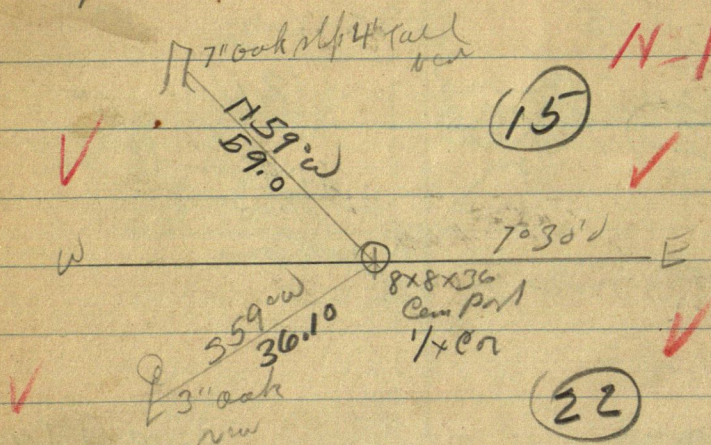 7" oak stp 4' tall
new
N-1
15
N59°W
59.0
W
7°30'
E
8x8x36
Cem Post
1/4 Cor
S59°W
36.10
3" oak
new
22